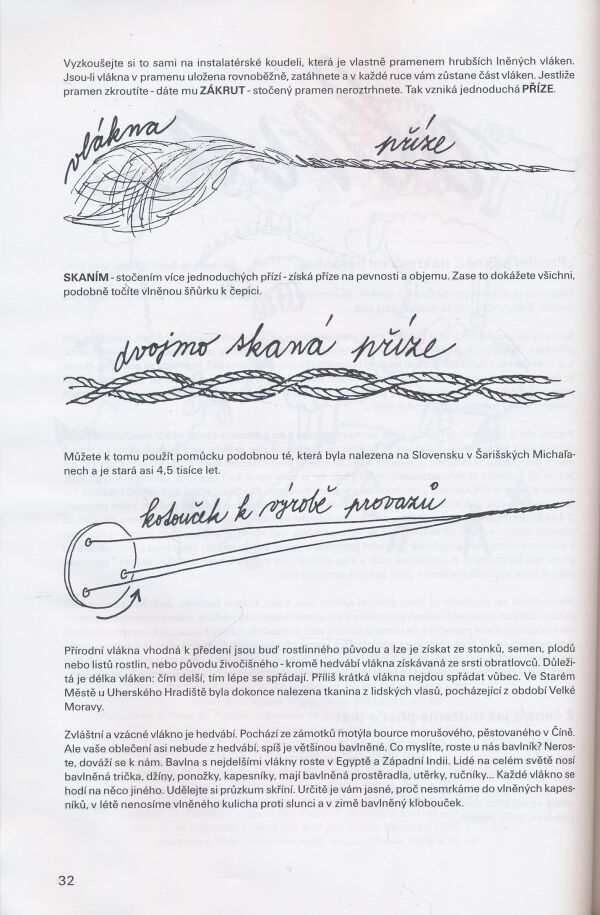 Vyzkoušejte si to sami na instalatérské koudeli, která je vlastně pramenem hrubších lněných vláken.
Jsou-li vlákna v pramenu uložena rovnoběžně, zatáhnete a v každé ruce vám zůstane část vláken. Jestliže
pramen zkroutíte - dáte mu ZÁKRUT - stočený pramen neroztrhnete. Tak vzniká jednoduchá PŘÍZE.
vlákna
příze
SKANÍM - stočením více jednoduchých přízí - získá příze na pevnosti a objemu. Zase to dokážete všichni,
podobně točíte vlněnou šňůrku k čepici.
dvojmo skaná příze
Můžete k tomu použít pomůcku podobnou té, která byla nalezena na Slovensku v Šarišských Michaľa-
nech a je stará asi 4,5 tisíce let.
kotouček k výrobě provazů
Přírodní vlákna vhodná k předení jsou buď rostlinného původu a lze je získat ze stonků, semen, plodů
nebo listů rostlin, nebo původu živočišného - kromě hedvábí vlákna získávaná ze srsti obratlovců. Důleži-
tá je délka vláken: čím delší, tím lépe se spřádají. Příliš krátká vlákna nejdou spřádat vůbec. Ve Starém
Městě u Uherského Hradiště byla dokonce nalezena tkanina z lidských vlasů, pocházející z období Velké
Moravy.
Zvláštní a vzácné vlákno je hedvábí. Pochází ze zámotků motýla bource morušového, pěstovaného v Číně.
Ale vaše oblečení asi nebude z hedvábí, spíš je většinou bavlněné. Co myslíte, roste u nás bavlník? Neros-
te, dováží se k nám. Bavlna s nejdelšími vlákny roste v Egyptě a Západní Indii. Lidé na celém světě nosí
bavlněná trička, džíny, ponožky, kapesníky, mají bavlněná prostěradla, utěrky, ručníky... Každé vlákno se
hodí na něco jiného. Udělejte si průzkum skříní. Určitě je vám jasné, proč nesmrkáme do vlněných kapes-
níků, v létě nenosíme vlněného kulicha proti slunci a v zimě bavlněný klobouček.
32